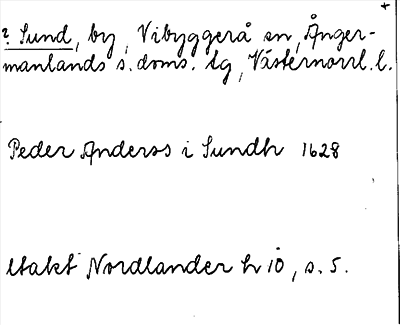 +
? Sund, by, Vibyggerå sn, Ånger-
manlands s. doms. tg, Västernorrl. l.
Peder Anderss i Sundh 1628
Utakt Nordlander h 10, s. 5.